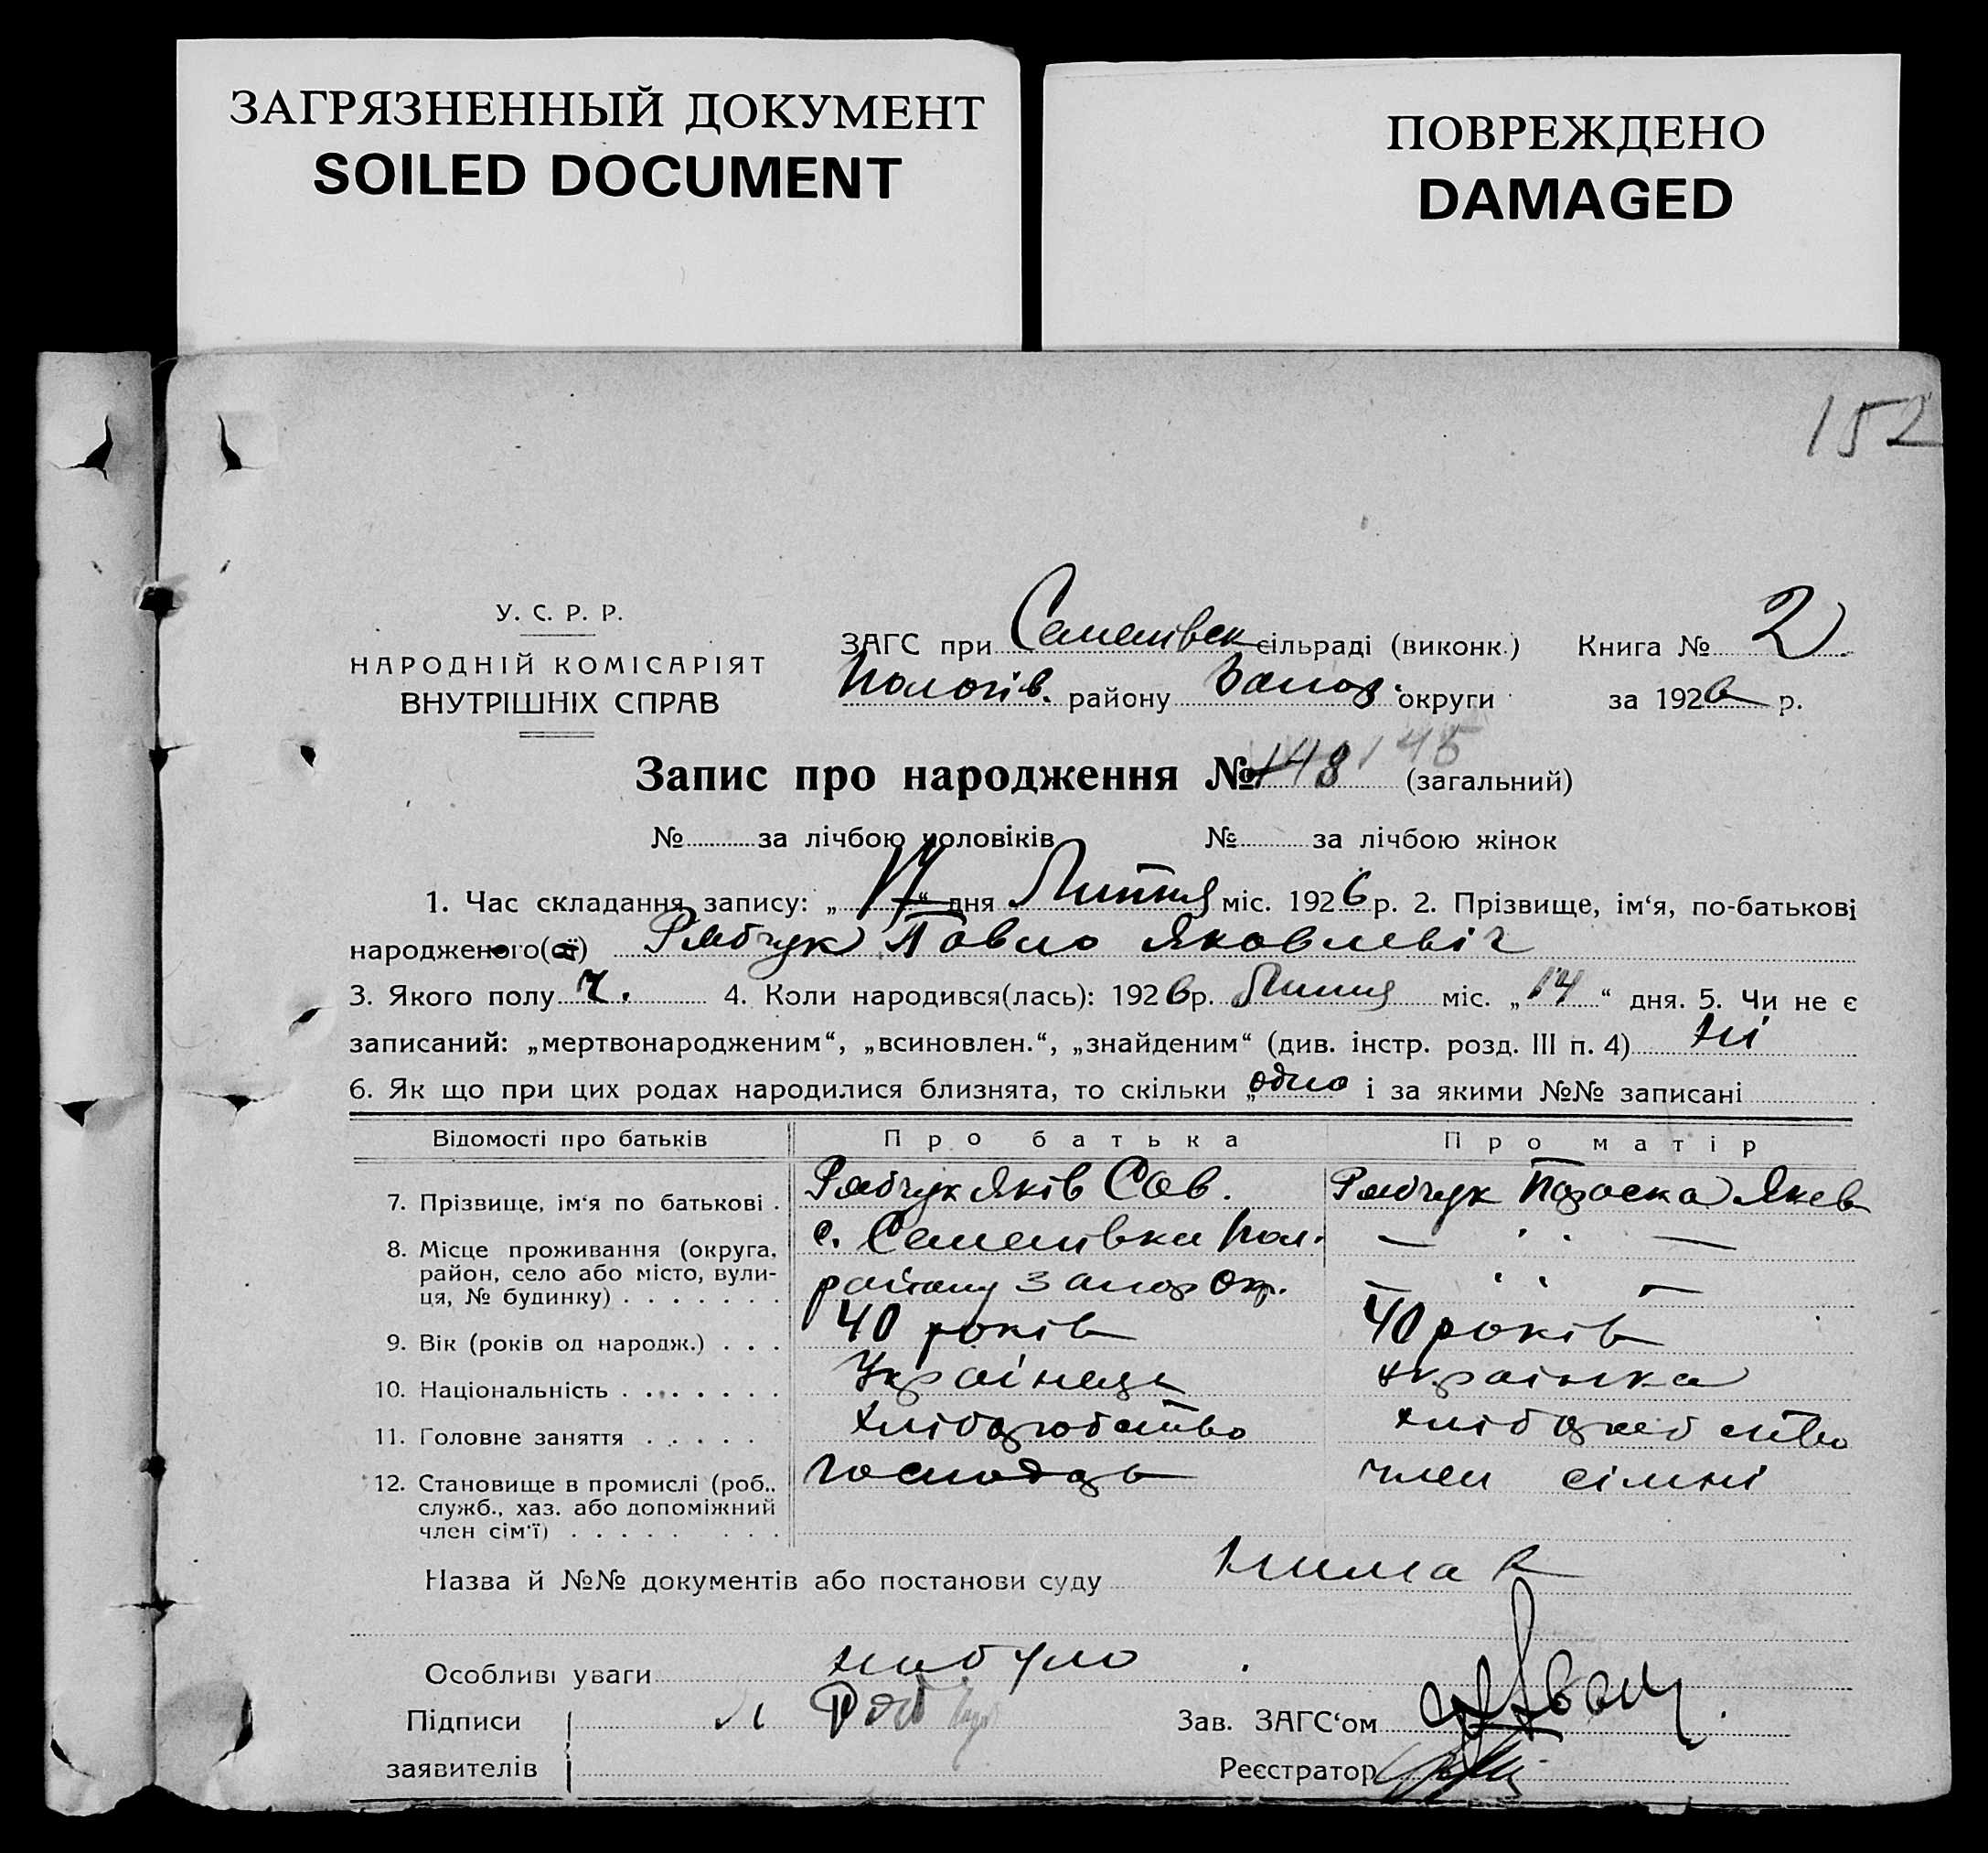 ЗАГРЯЗНЕННЫЙ ДОКУМЕНТ
SOILED DOCUMENT
ПОВРЕЖДЕНО
DAMAGED
152
У. С. Р. Р.
НАРОДНІЙ КОМІСАРІЯТ
ВНУТРІШНІХ СПРАВ
ЗАГС при Семенівск сільраді (виконк.) Книга № 2
Пологів. району Запор. округи за 1926 р.
Запис про народження № 148 145 (загальний)
№ за лічбою чоловіків № за лічбою жінок
1. Час складання запису: „17“ дня Липня міс. 1926 р. 2. Прізвище, ім‘я, по-батькові
народженого(ої) Рябчук Павло Яковлевіч
3. Якого полу ч. 4. Коли народився(лась): 1926 р. Липня міс. „14“ дня. 5. Чи не є
записаний: „мертвонародженим“, „всиновлен.“, „знайденим“ (див. інстр. розд. III п. 4) ні
6. Як що при цих родах народилися близнята, то скільки „одно і за якими №№ записані
Відомості про батьків Про батька Про матір
7. Прізвище, ім‘я по батькові . Рябчук Яків Сав. Рябчук Параска Яков
8. Місце проживання (округа, район, село або місто, вулиця, № будинку) . . . . . . . с. Семенівка Пол. району Запор Окр. — . . —
9. Вік (років од народж.) . . . 40 років 40 років
10. Національність . . . . . . . Українець українка
11. Головне заняття . . . . . хліборобство хліборобство
12. Становище в промислі (роб., служб., хаз. або допоміжний член сім‘ї) . . . . . . . . Господарь член сімні
Назва й №№ документів або постанови суду
Особливі уваги небуло
Підписи Ряб
Зав. ЗАГС‘ом
заявителів
Реєстратор